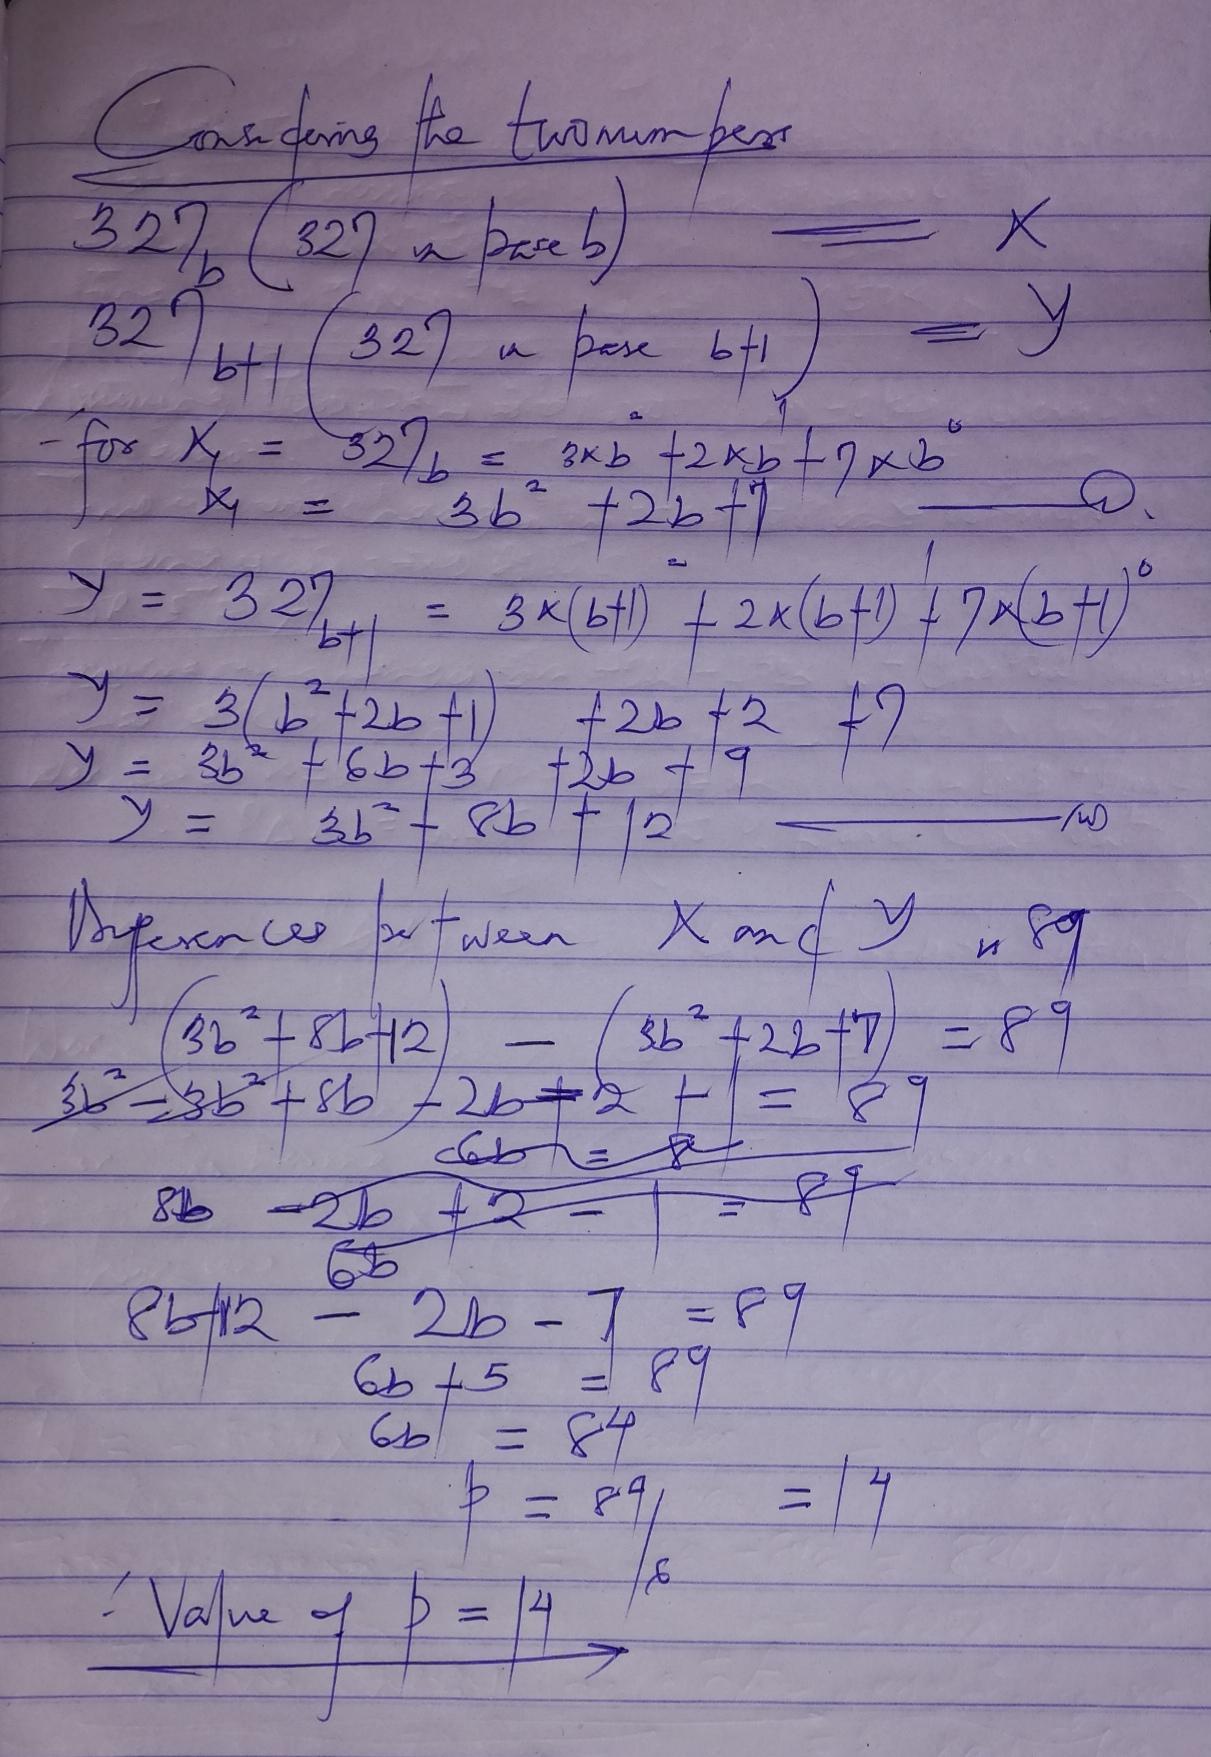 Considering the two numbers
327b (327 in base b) = X
327b+1 (327 in base b+1) = y
for X, = 327b = 3×b² + 2×b¹ + 7×b⁰
X, = 3b² + 2b + 7 (i).
y = 327b+1 = 3×(b+1)² + 2×(b+1)¹ + 7×(b+1)⁰
y = 3(b²+2b+1) +2b+2 +7
y = 3b² + 6b+3 +2b + 9
y = 3b² + 8b + 12 (ii)
Differences between X and y is 89
(3b²+8b+12) - (3b²+2b+7) = 89
3b² - 3b² + 8b - 2b + 2 + 1 = 89
6b = 8
8b - 2b + 2 - 1 = 89
6b
8b+12 - 2b - 7 = 89
6b + 5 = 89
6b = 84
b = 84/6 = 14
∴ Value of b = 14